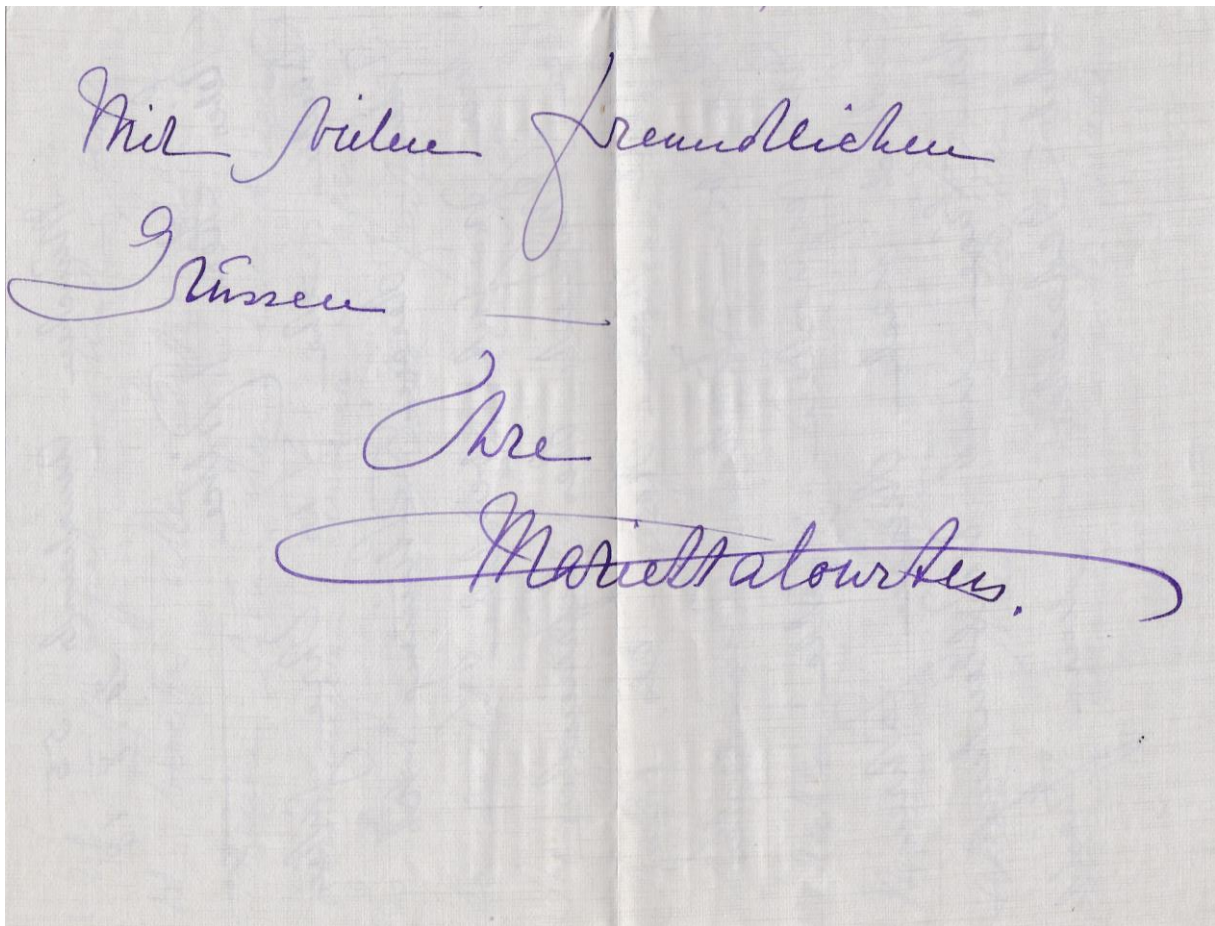 Mit vielen freundlichen
Grüssen —
Ihre
Marietta